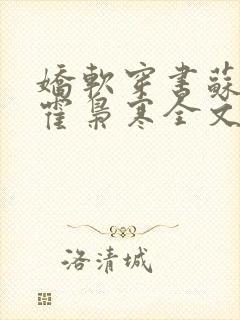 嬌軟穿書蘇
霍梟寒全文
洛清城